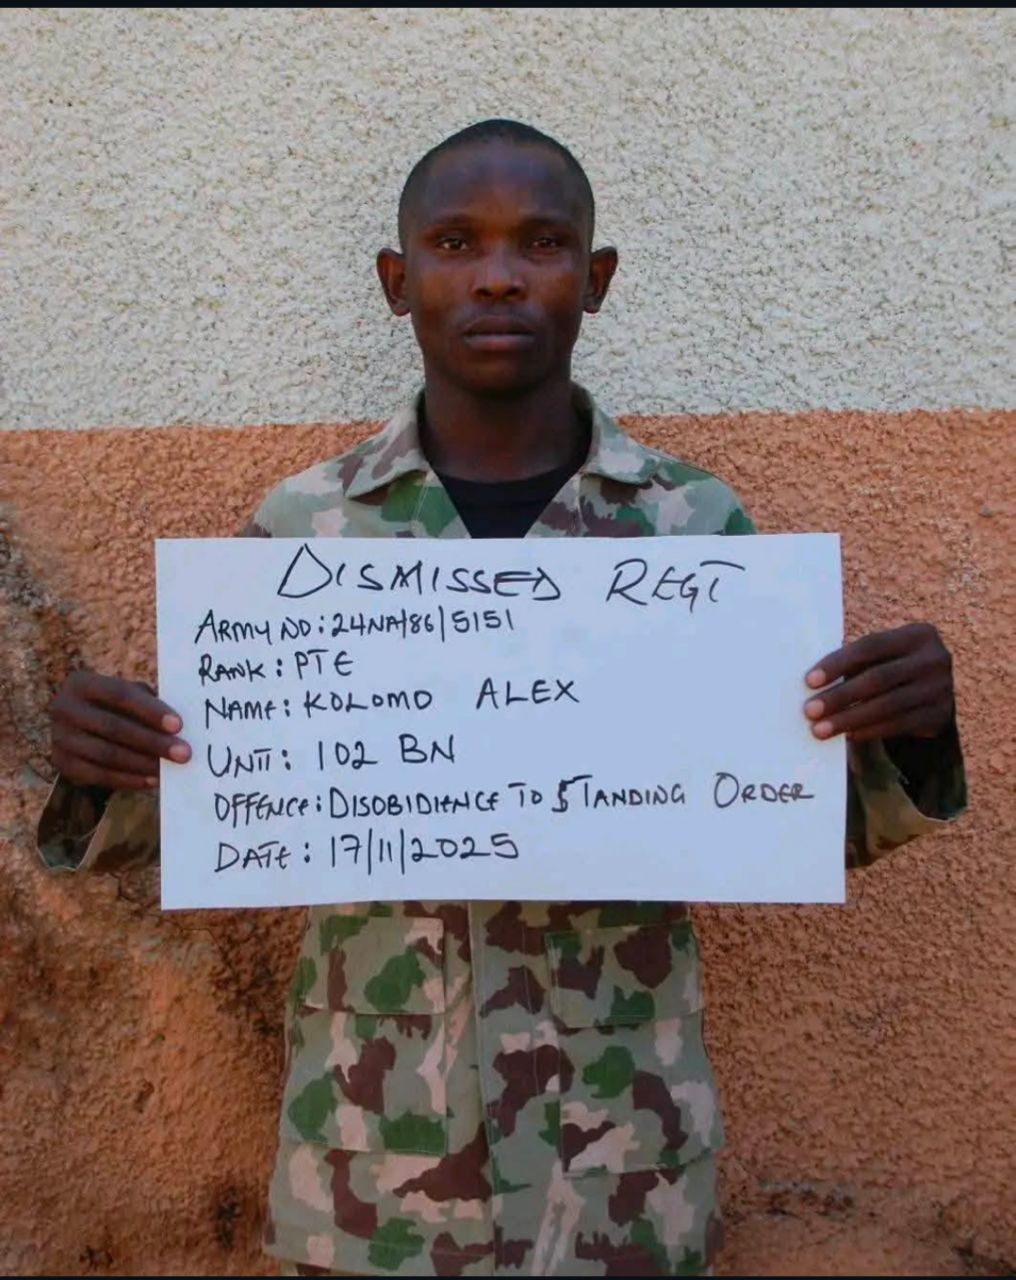 DISMISSED REGT
ARMY NO: 24NA/86/5151
RANK: PTE
NAME: KOLOMO ALEX
UNIT: 102 BN
OFFENCE: DISOBIDIENCE TO STANDING ORDER
DATE: 17/11/2025